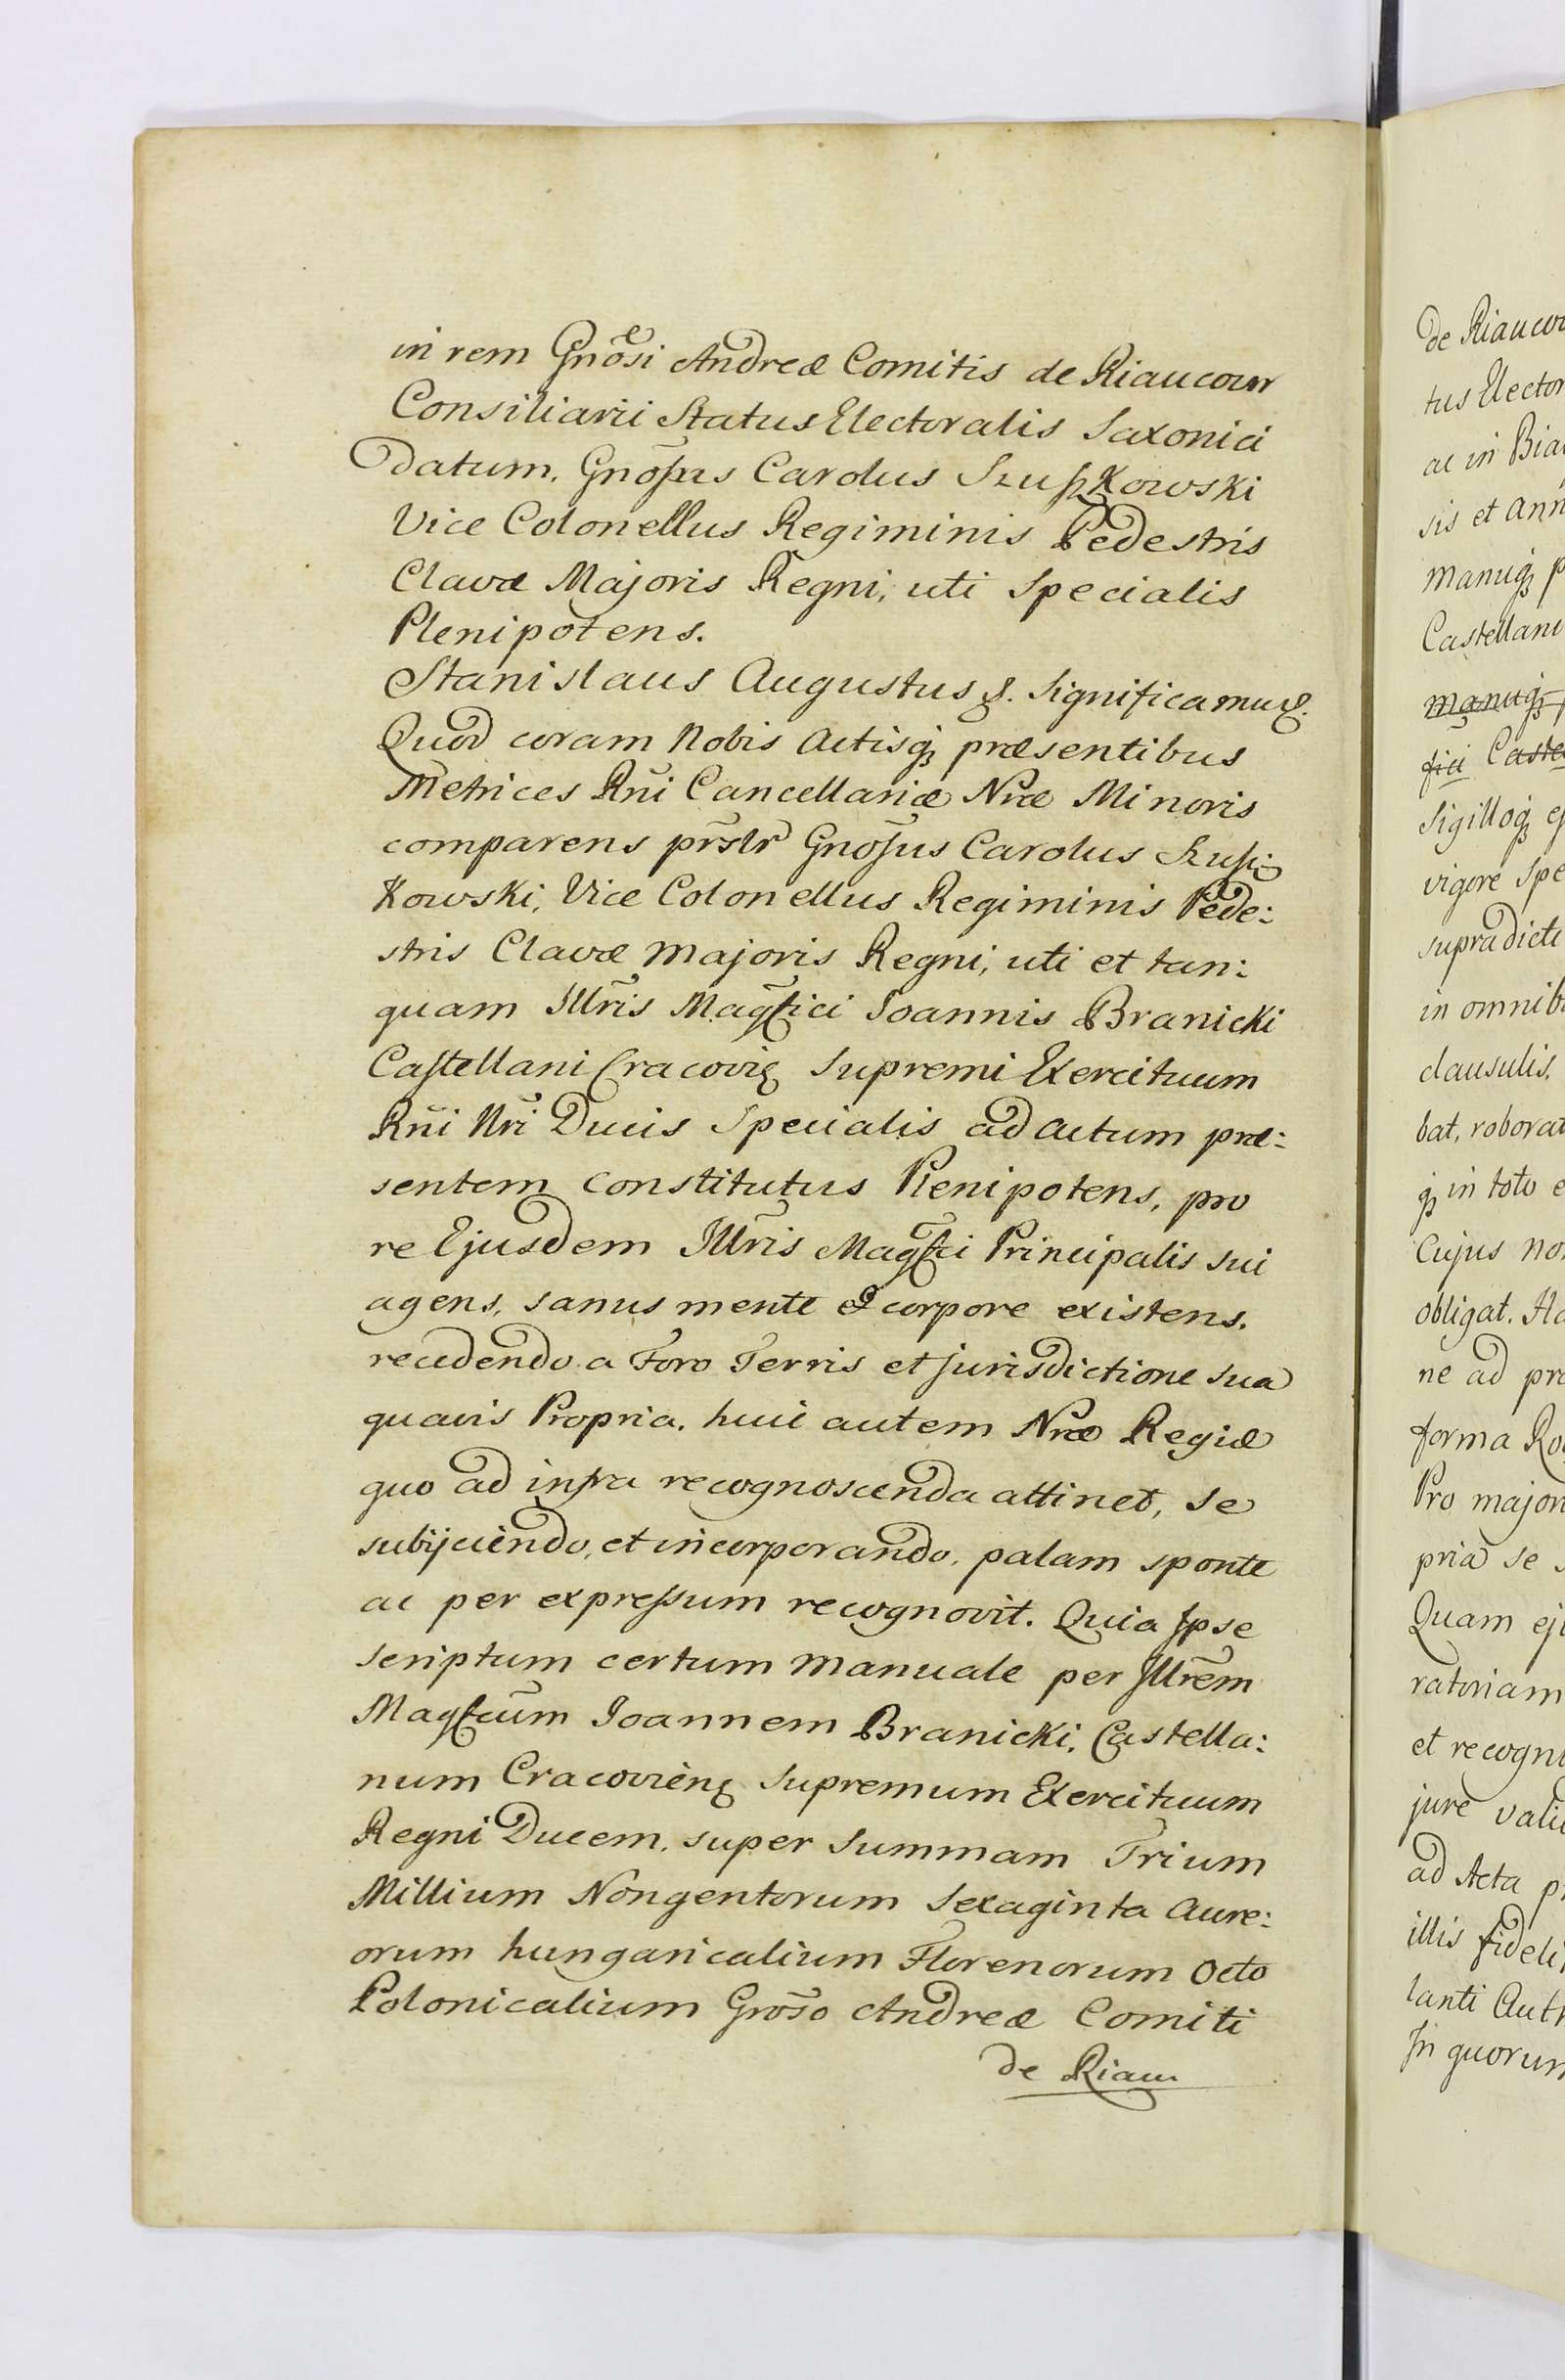 in rem Gnõsi Andreæ Comitis de Riaucour
Consiliarii Status Electoralis Saxonici
Datum. Gnõsus Carolus Szuszkowski
Vice Colonellus Regiminis Pedestris
Clavæ Majoris Regni, uti Specialis
Plenipotens.
Stanislaus Augustus &. Significamus.
Quod coram Nobis Actisq; præsentibus
Metrices Rñi Cancellariæ Nræ Minoris
comparens prslr Gnosus Carolus Szusz
Kowski, Vice Colonellus Regiminis Pede:
stris Clavæ Majoris Regni, uti et tan:
quam Illris Magfici Joannis Branicki
Castellani Cracovię Supremi Exercituum
Rñi Nri Ducis Specialis ad actum præ:
sentem Constitutus Plenipotens, pro
re Ejusdem Illris Magfci Principalis sui
agens, sanus mente et corpore existens.
recedendo a Foro Terris et Jurisdictione sua
quavis Propria, huic autem Nræ Regiæ
quo ad infra recognoscenda attinet, se
subijciendo, et incorporando, palam sponte
ac per expressum recognovit. Quia Ipse
scriptum certum manuale per Illrem
Magfcum Joannem Branicki, Castella:
num Cracovieñ Supremum Exercituum
Regni Ducem, super Summam Trium
Millium Nongentorum Sexaginta Aure:
orum hungaricalium Florenorum Octo
Polonicalium Groso Andreæ Comiti
de Riau
de Riaucou
tus Elector
ac in Bia
sis et ann
manuq; p
Castellani
manuq;
fici Caste
Sigilloq; ej
vigore Spe
supradicti
in omnib
clausulis,
bat, roborat
q; in toto e
Cujus no
obligat. Ha
ne ad pr
forma Ro
Pro majori
pria se s
Quam ej
ratoriam
et recogni
jure vali
ad Acta p
illis fideli
lanti Auth
In quorum